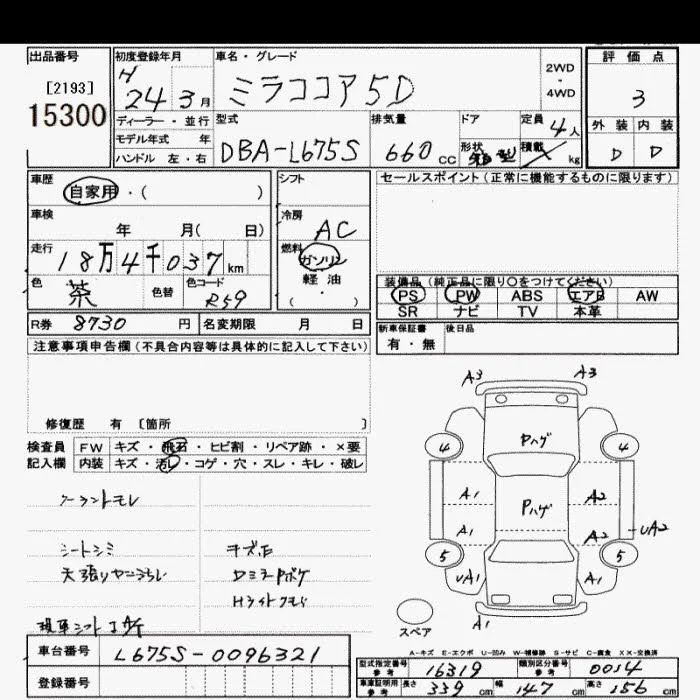 出品番号
[2193]
15300
初度登録年月
H
24 3月
車名・グレード
ミラココア5D
2WD
・
4WD
評価点
3
外装 内装
D D
ディーラー・並行
モデル年式 年
ハンドル 左・右
型式
DBA-L675S
排気量
660 CC
ドア
形状
定員
4人
積載
kg
車歴
自家用・( )
車検
年 月( 日)
走行
18万4千037km
色
茶
色替
色コード
R59
シフト
冷房
AC
燃料
ガソリン
軽油
・
( )
セールスポイント(正常に機能するものに限ります)
装備品(純正品に限り○をつけてください)
PS PW ABS エアB AW
SR ナビ TV 本革
R券 8730 円 名変期限 月 日
新車保証書
有・無
後日品
注意事項申告欄(不具合内容等は具体的に記入して下さい)
修復歴 有 [箇所 ]
検査員
記入欄
FW キズ・飛石・ヒビ割・リペア跡・×要
内装 キズ・汚レ・コゲ・穴・スレ・キレ・破レ
クーラントモレ
シートシミ
キズ凹
天張りヤニうちし
DミラPボケ
Hライトクモリ
A3 A3
4 Pハゲ 4
A1 Pハゲ A2
A1 A2 UA2
5 5
UA1 A1
A1
スペア
A-キズ E-エクボ U-凹み W-補修跡 S-サビ C-腐食 XX-交換済
車台番号 L675S-0096321
登録番号
型式指定番号
参考
16319
類別区分番号
参考
0014
車庫証明用
参考
長さ 339 cm 幅 147 cm 高さ 156 cm